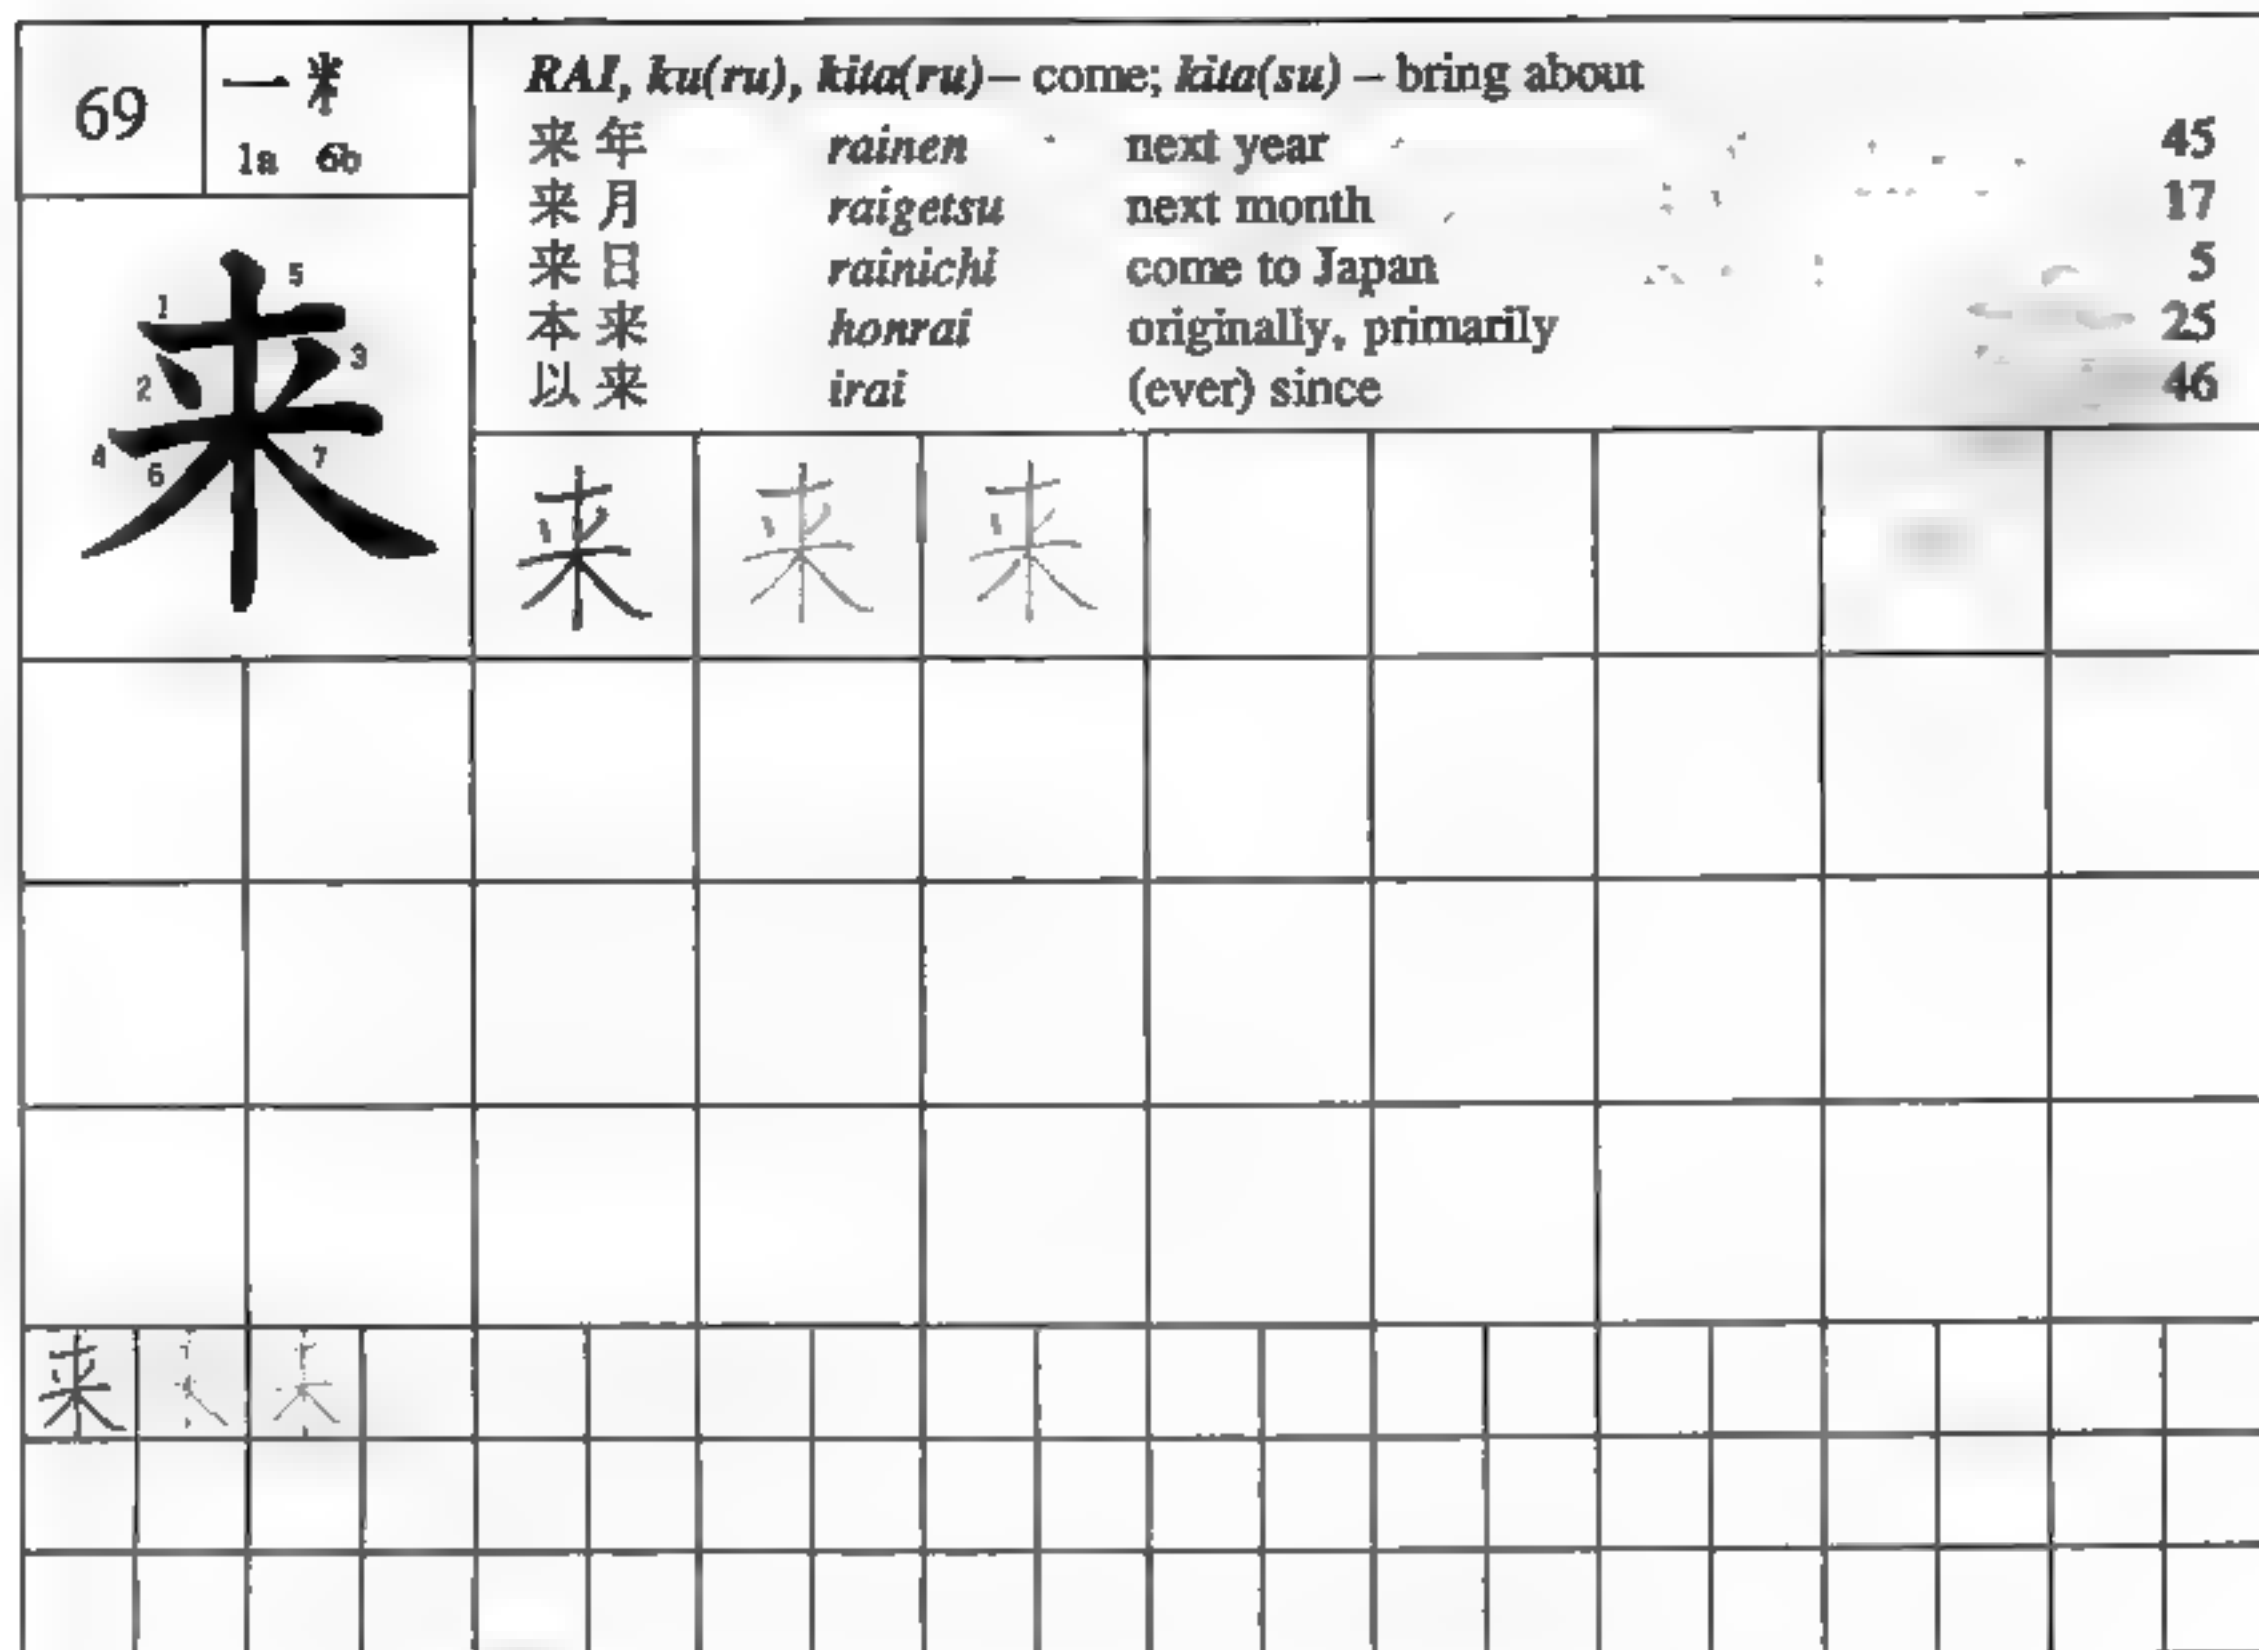 69
一 米
1a 6b
RAI, ku(ru), kita(ru) – come; kita(su) – bring about
来年 rainen next year 45
来月 raigetsu next month 17
来日 rainichi come to Japan 5
本来 honrai originally, primarily 25
以来 irai (ever) since 46
来
1
2
3
4
5
6
7
来 来 来
来 来 来